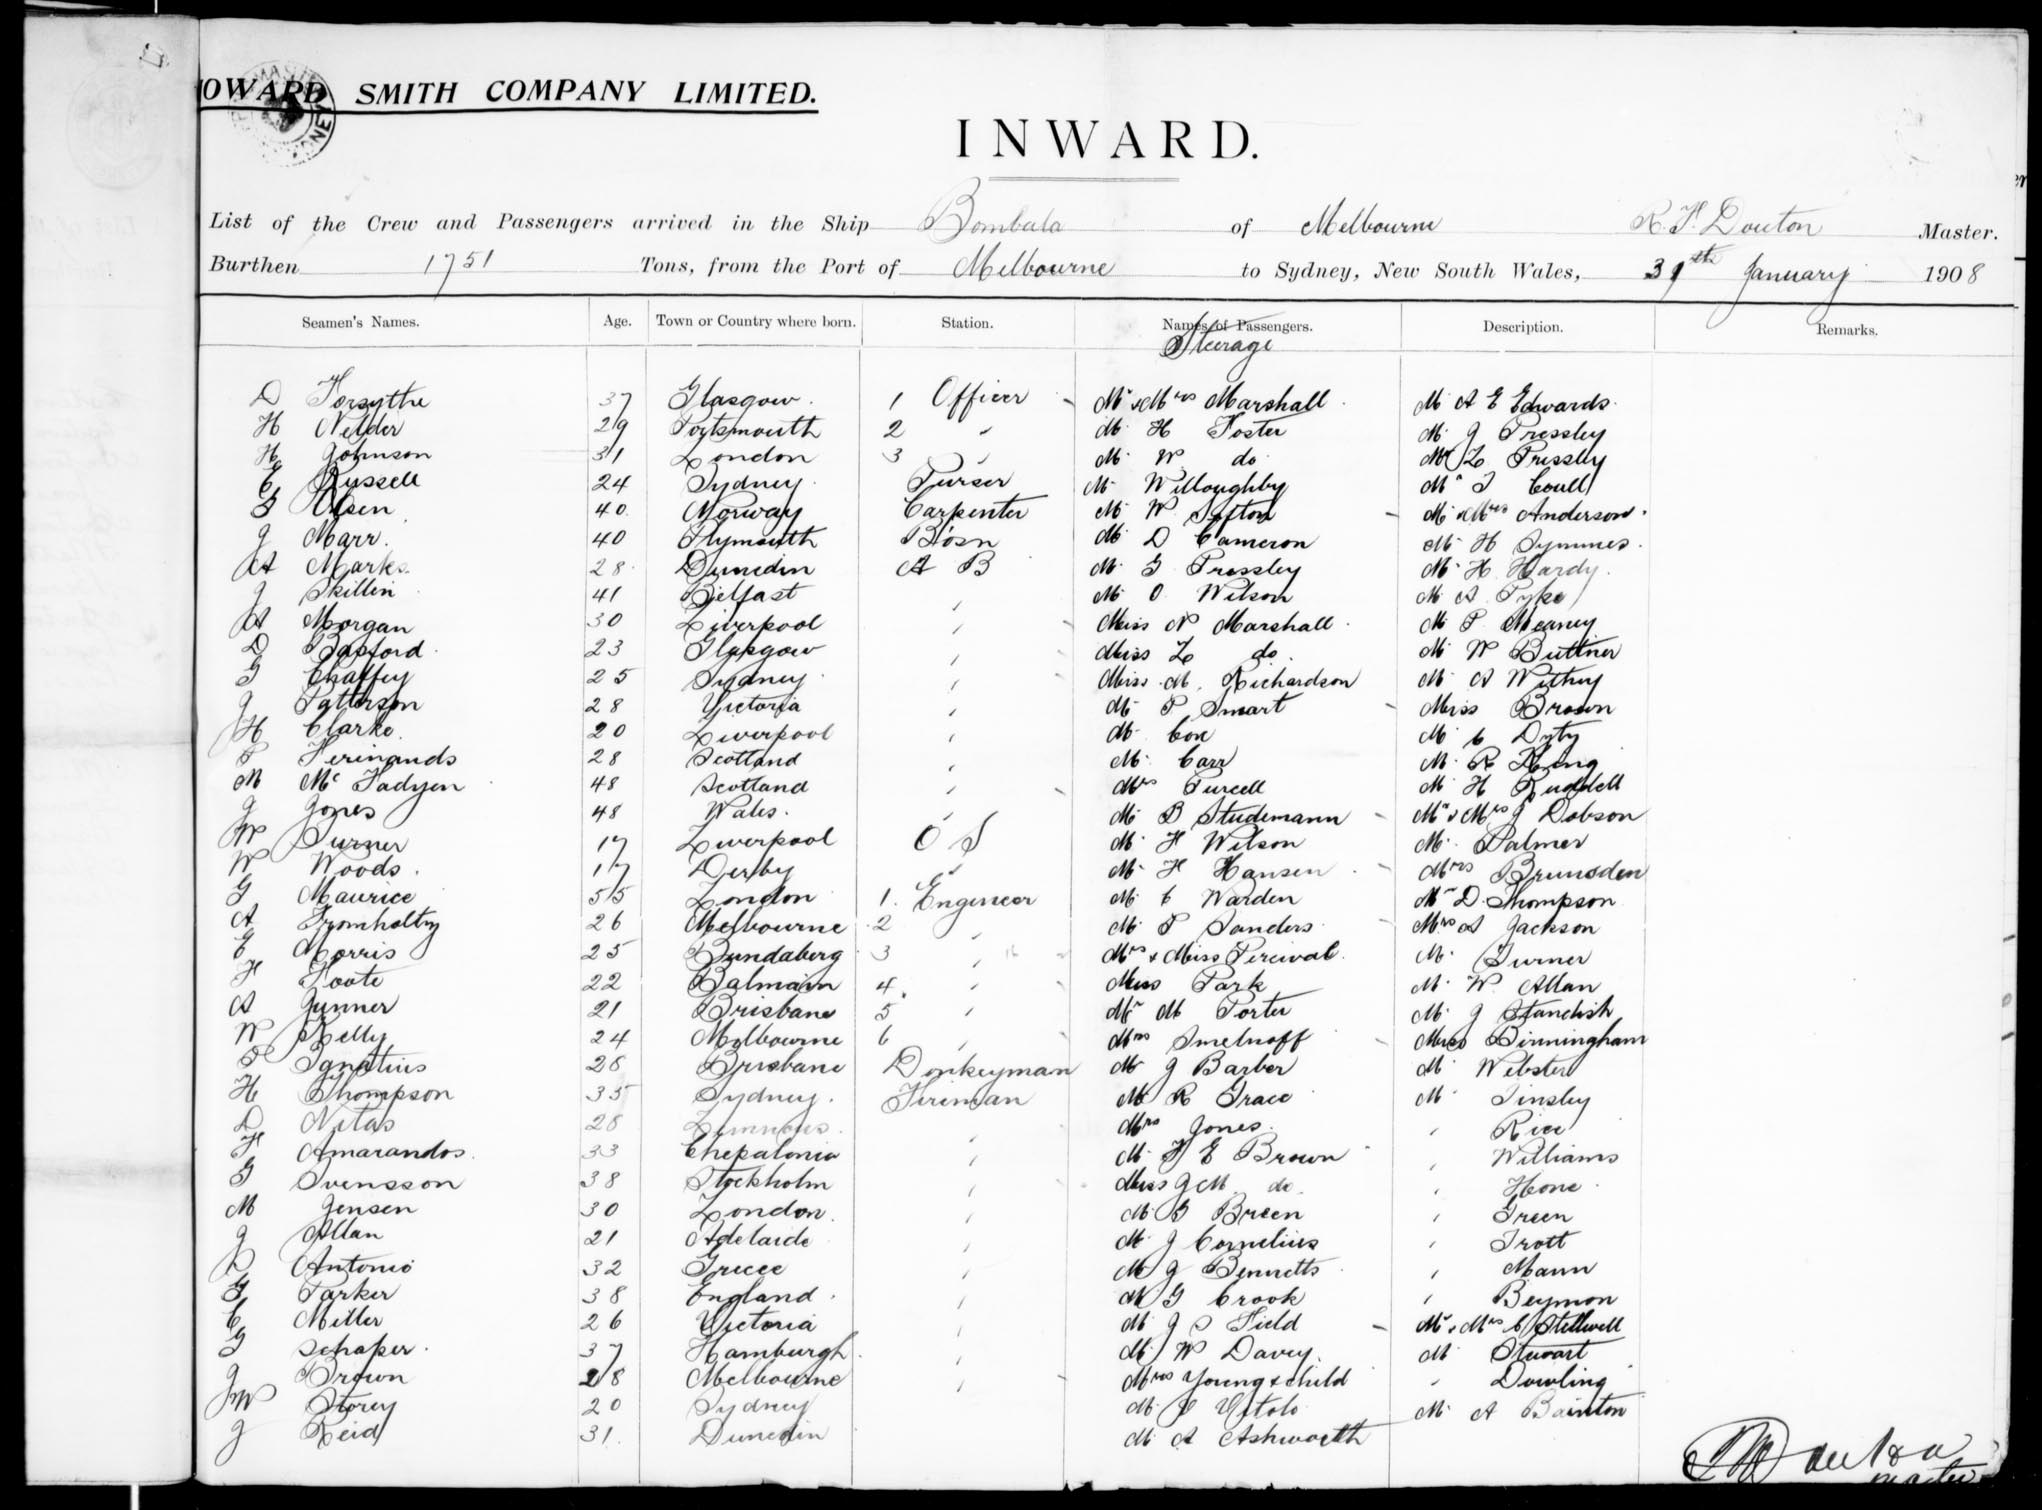 HOWARD SMITH COMPANY LIMITED.
INWARD.
List of the Crew and Passengers arrived in the Ship Bombala of Melbourne R. F. Douton Master.
Burthen 1751 Tons, from the Port of Melbourne to Sydney, New South Wales, 31st January 1908
Seamen's Names. Age. Town or Country where born. Station. Names of Passengers. Description. Remarks.
Steerage
D Forsythe 37 Glasgow. 1 Officer Mr & Mrs Marshall Mr A E Edwards
H Nelder 29 Portsmouth 2 " Mr H Foster Mr J Pressley
H Johnson 31 London 3 " Mr W do Mr L Pressley
E Russell 24 Sydney Purser Mr Willoughby Mr J Coull
Olsen 40 Norway Carpenter Mr W Mr & Mrs Anderson
J Marr 40 Plymouth Bosn Mr D Cameron Mr H Symmes
A Marks 28 Dunedin A B Mr G Pressley Mr H Hardy
J Skillin 41 Belfast " Mr O Wilson Mr A Pyke
A Morgan 30 Liverpool " Miss N Marshall Mr P Meaney
D Basford 23 Glasgow " Miss L do Mr W Buttner
G Chaffey 25 Sydney " Miss M. Richardson Mr A Withey
J Patterson 28 Victoria " Mr P Smart Miss Brown
H Clarke 20 Liverpool " Mr Cox Mr C Dyty
P Ferinands 28 Scotland " Mr Carr Mr R King
M McFadyen 48 Scotland " Mrs Purcell Mr H Ruddell
J Jones 48 Wales " Mr B Studemann Mr & Mrs J Dobson
W Turner 17 Liverpool O S Mr H Wilson Mr Palmer
W Woods 17 Derby " Mr H Hansen Mrs Brunsden
G Maurice 55 London 1. Engineer Mr C Warden Mr D Thompson
A 26 Melbourne 2 " Mr P Sanders Mrs A Jackson
E Morris 25 Bundaberg 3 " Mrs & Miss Percival Mr Turner
F Foote 22 Balmain 4 " Miss Park Mr W. Allan
A Gunner 21 Brisbane 5 " Mr M Porter Mr J Standish
W Kelly 24 Melbourne 6 " Mrs Smelnoff Miss Birmingham
P Ignatius 28 Brisbane Donkeyman Mr J Barber Mr Webster
H Thompson 35 Sydney. Fireman Mr R Grace Mr Tinsley
D Nitas 28 " Mrs Jones " Rice
F Amarandos 33 Chepalonia " Mr F E Brown " Williams
G Svensson 38 Stockholm " Miss J M do " Hone
M Jensen 30 London " Mr G Breen " Green
J Allan 21 Adelaide " Mr J Cornelius " Trott
D Antonio 32 Greece " Mr J Bennetts " Mann
G Parker 38 England " Mr G Crook " Beymon
C Miller 26 Victoria " Mr J S Field Mr & Mrs C Stillwell
G Schaper 37 Hamburgh " Mr W Davey Mr Stuart
J Brown 28 Melbourne " Mrs Young & child " Dowling
W Storey 20 Sydney Mr Vitolo Mr A Bainton
J Reid 31 Dunedin Mr A Ashworth
Master